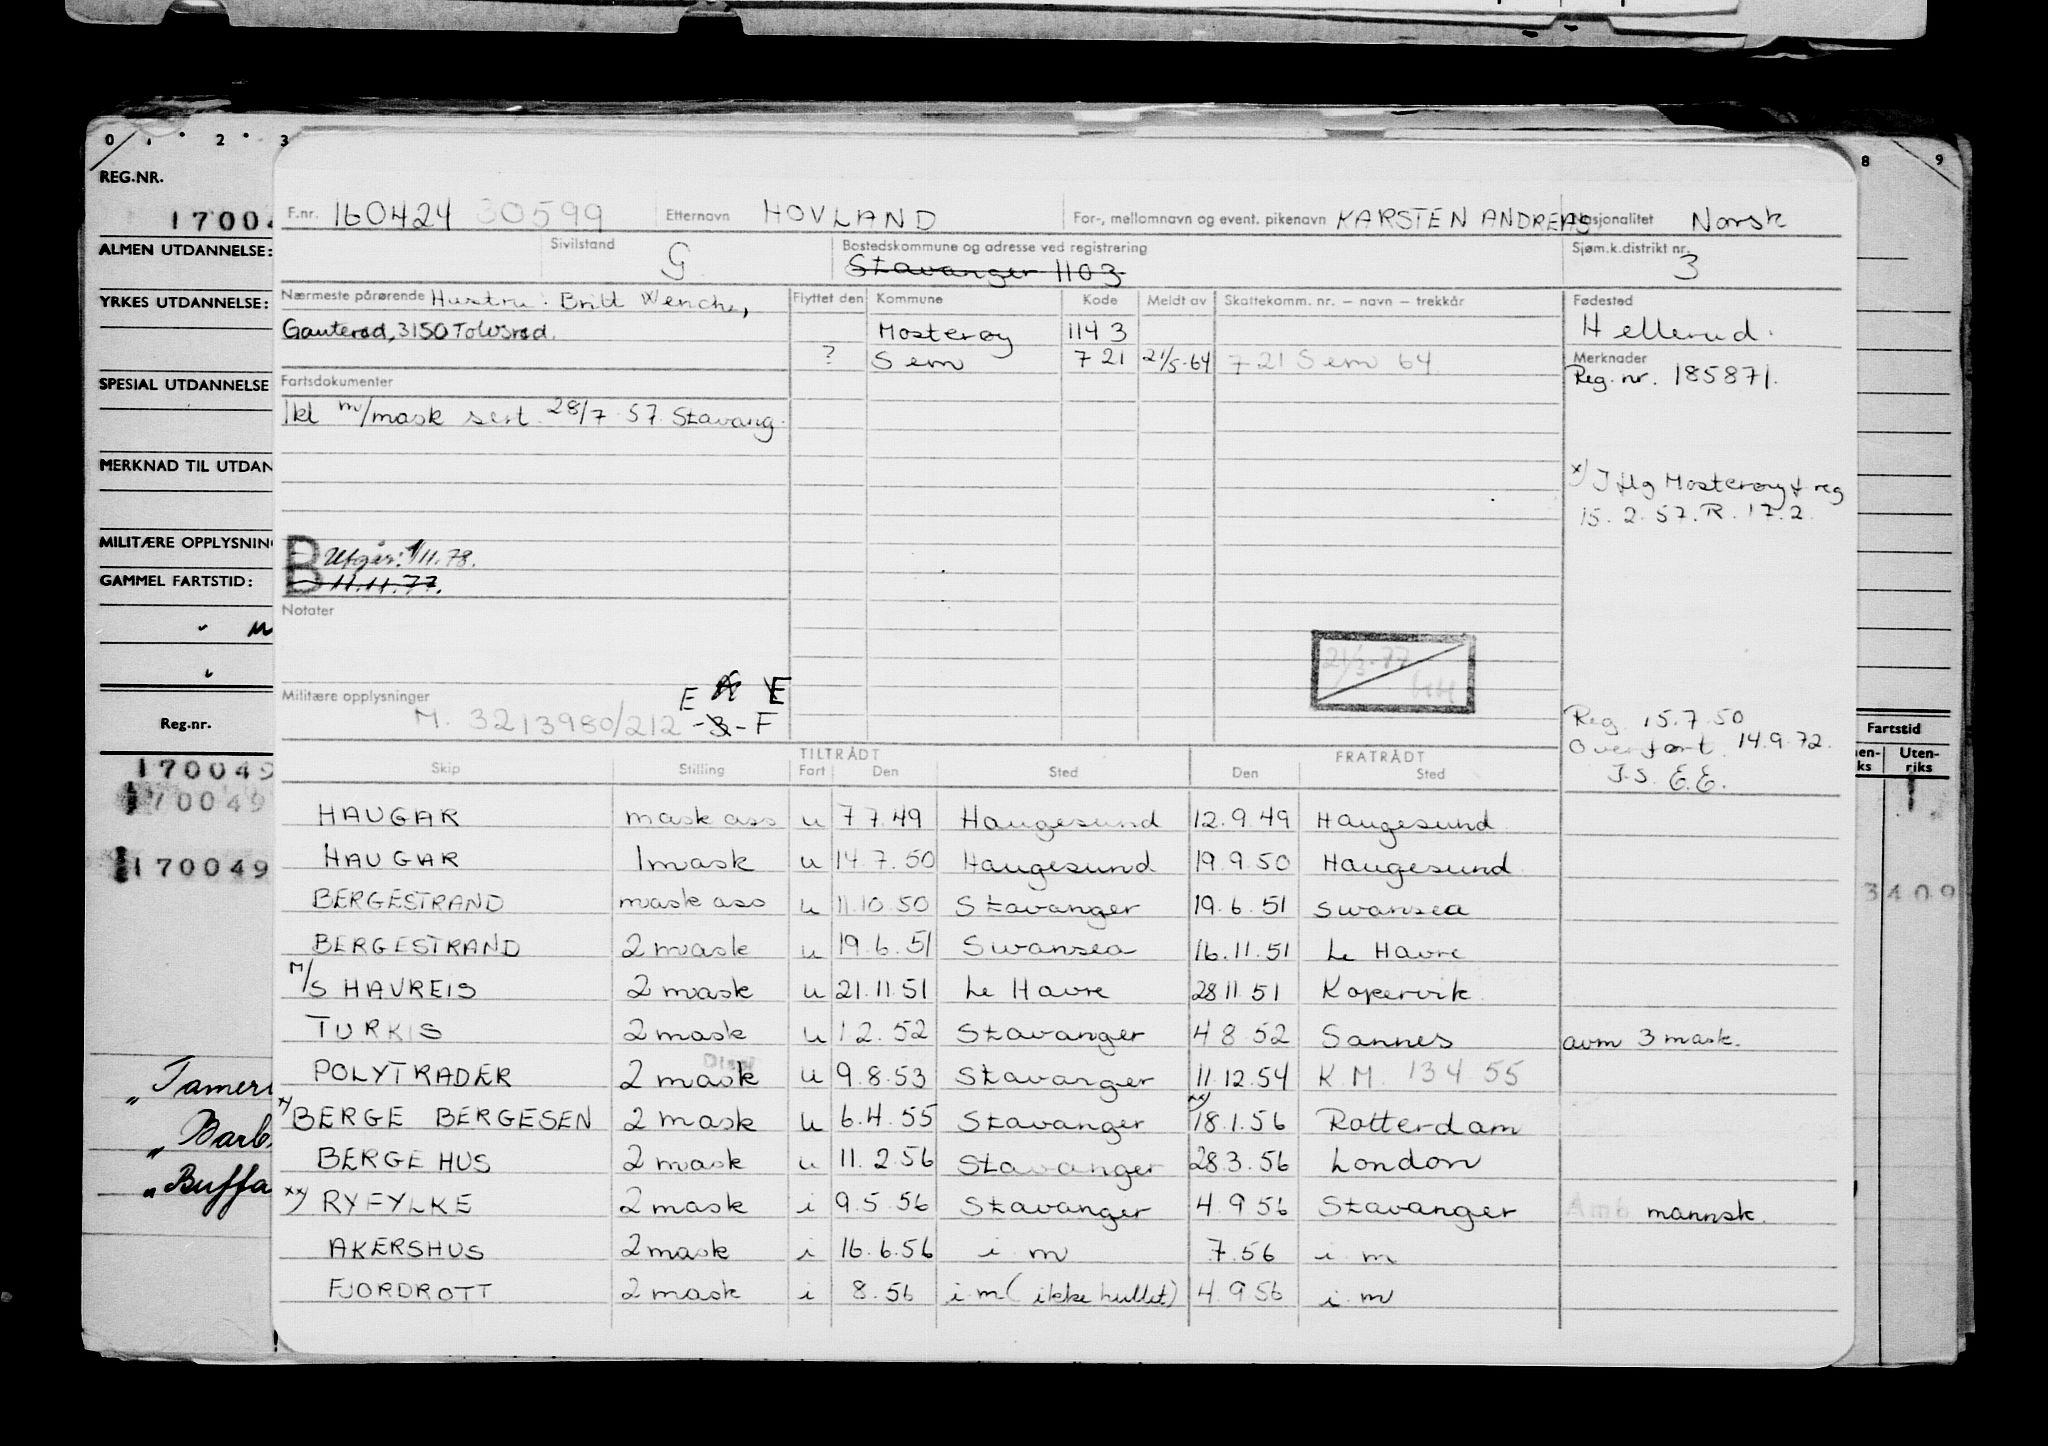 0 . 2 . 3
8 9
REG.NR.
17004
ALMEN UTDANNELSE:
YRKES UTDANNELSE:
SPESIAL UTDANNELSE
MERKNAD TIL UTDAN
MILITÆRE OPPLYSNIN
GAMMEL FARTSTID:
Reg.nr.
170049
70049
170049
„ Tameri
„ Barb
„ Buffa
F.nr. 160424 30599 Etternavn HOVLAND For-, mellomnavn og event. pikenavn KARSTEN ANDREAS Nasjonalitet Norsk
Sivilstand G Bostedskommune og adresse ved registrering Stavanger 1103 Sjøm.k.distrikt nr. 3
Nærmeste pårørende Hustru: Britt Wenche,
Gauterød, 3150 Tolvsrød.
Flyttet den Kommune Kode Meldt av Skattekomm. nr. – navn – trekkår
Mosterøy 114 3
? Sem 7 21 21/5-64 7 21 Sem 64
Fødested
Hellerud.
Merknader
Reg. nr. 185871.
Fartsdokumenter
1kl m/mask sert 28/7 57. Stavang.
x) I flg Mosterøy f reg
15. 2. 57. R. 17.2.
B Utgår: 1/11.78.
11.11.77.
Notater
21/3-77
Militære opplysninger
M. 3213980/212
E A E
-3- F
Reg. 15.7.50
Overført 14.9.72.
J.S. E.E.
TILTRÅDT FRATRÅDT
Skip Stilling Fart Den Sted Den Sted
HAUGAR mask ass u 7 7.49 Haugesund 12.9.49 Haugesund
HAUGAR 1mask u 14.7.50 Haugesund 19.9.50 Haugesund
BERGESTRAND mask ass u 11.10.50 Stavanger 19.6.51 Swansea
BERGESTRAND 2 mask u 19.6.51 Swansea 16.11.51 Le Havre
M/S HAVREIS 2 mask u 21.11.51 Le Havre 28 11 51 Kopervik
TURKIS 2 mask u 1 2.52 Stavanger 4 8 52 Sannes avm 3 mask.
POLYTRADER 2 mask u 9.8.53 Stavanger 11.12.54 K.M. 134 55
x) BERGE BERGESEN 2 mask u 6.4.55 Stavanger xx) 18.1.56 Rotterdam
BERGEHUS 2 mask u 11.2.56 Stavanger 28.3.56 London
xx) RYFYLKE 2 mask i 9.5 56 Stavanger 4.9 56 Stavanger Amb mannsk.
AKERSHUS 2mask i 16.6.56 i m 7.56 i m
FJORDROTT 2 mask i 8.56 i m (ikke hullet) 4.9 56 i m
Fartstid
Uten-
riks
3409